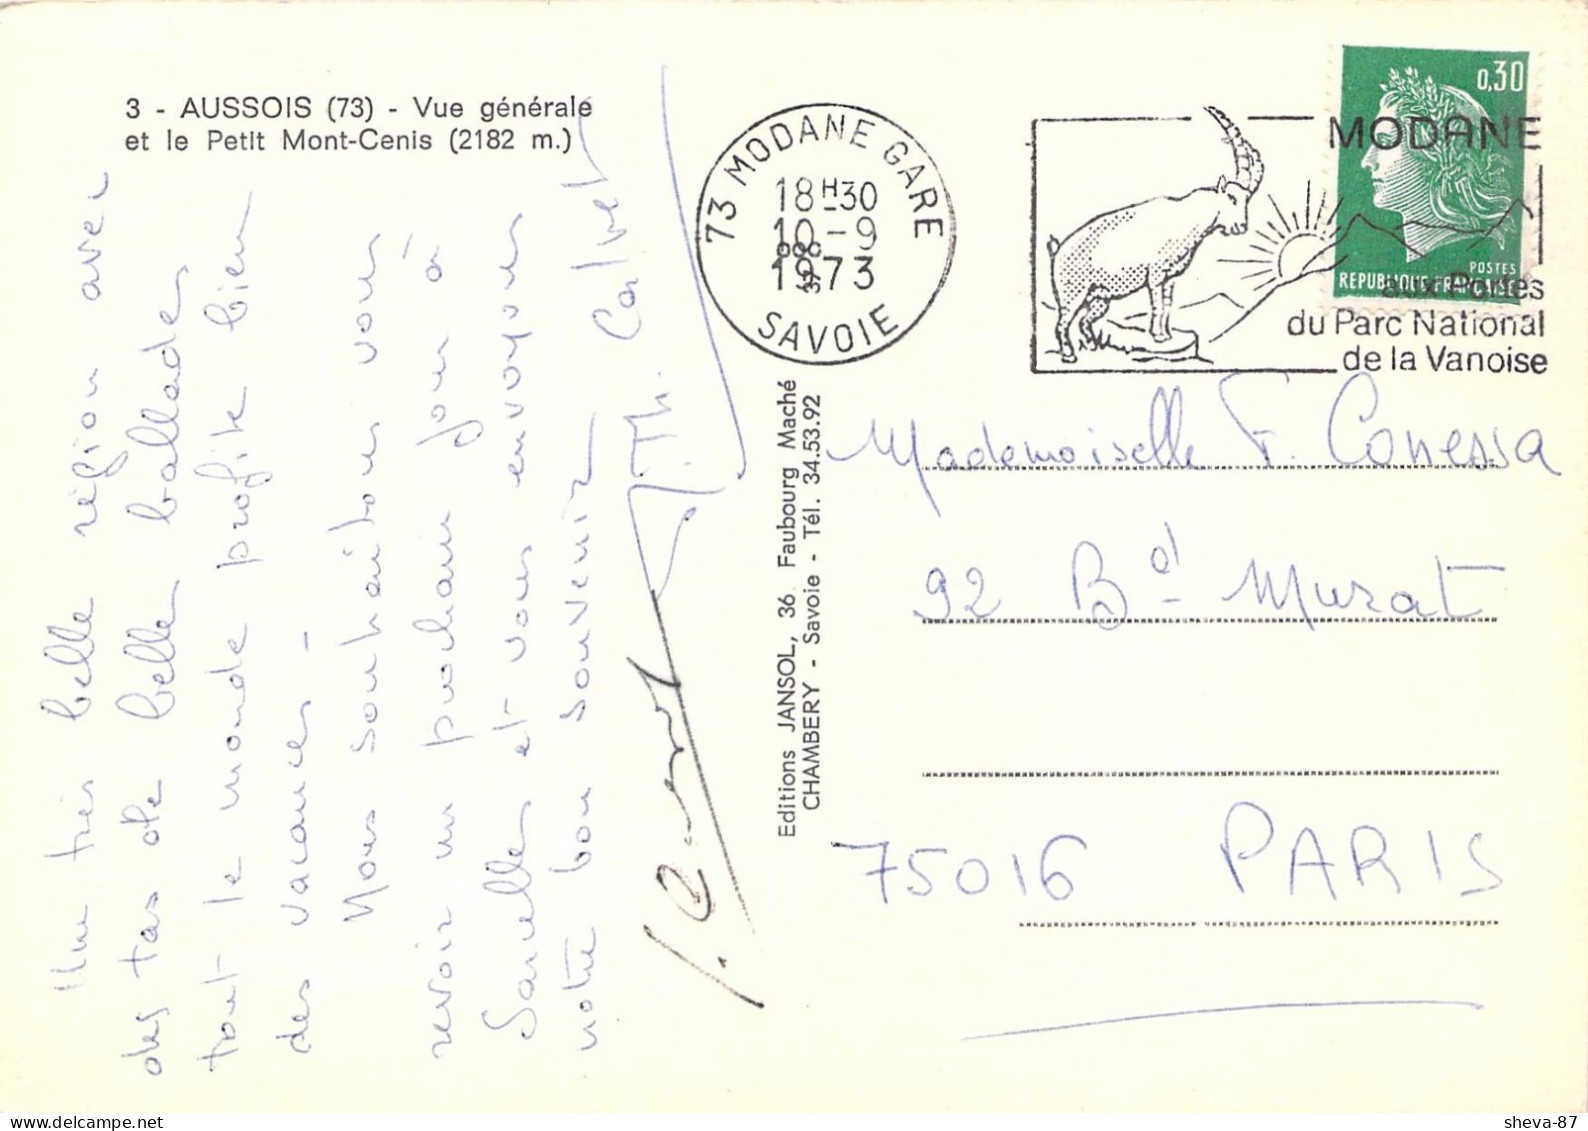 3 - AUSSOIS (73) - Vue générale
et le Petit Mont-Cenis (2182 m.)
Une très belle région avec
des tas de belles ballades
tout le monde profite bien
des vacances -
Nous souhaitons vous
revoir un prochain jour à
Sarcelles et vous envoyons
notre bon souvenir
Th. Calvet
Editions JANSOL, 36 Faubourg Maché
CHAMBERY - Savoie - Tél. 34.53.92
73 MODANE GARE
18H30
10 - 9
1973
SAVOIE
MODANE
aux Portes
du Parc National
de la Vanoise
0,30
POSTES
REPUBLIQUE FRANÇAISE
Mademoiselle F. Conessa
92 Bd Murat
75016 PARIS
sheva-87